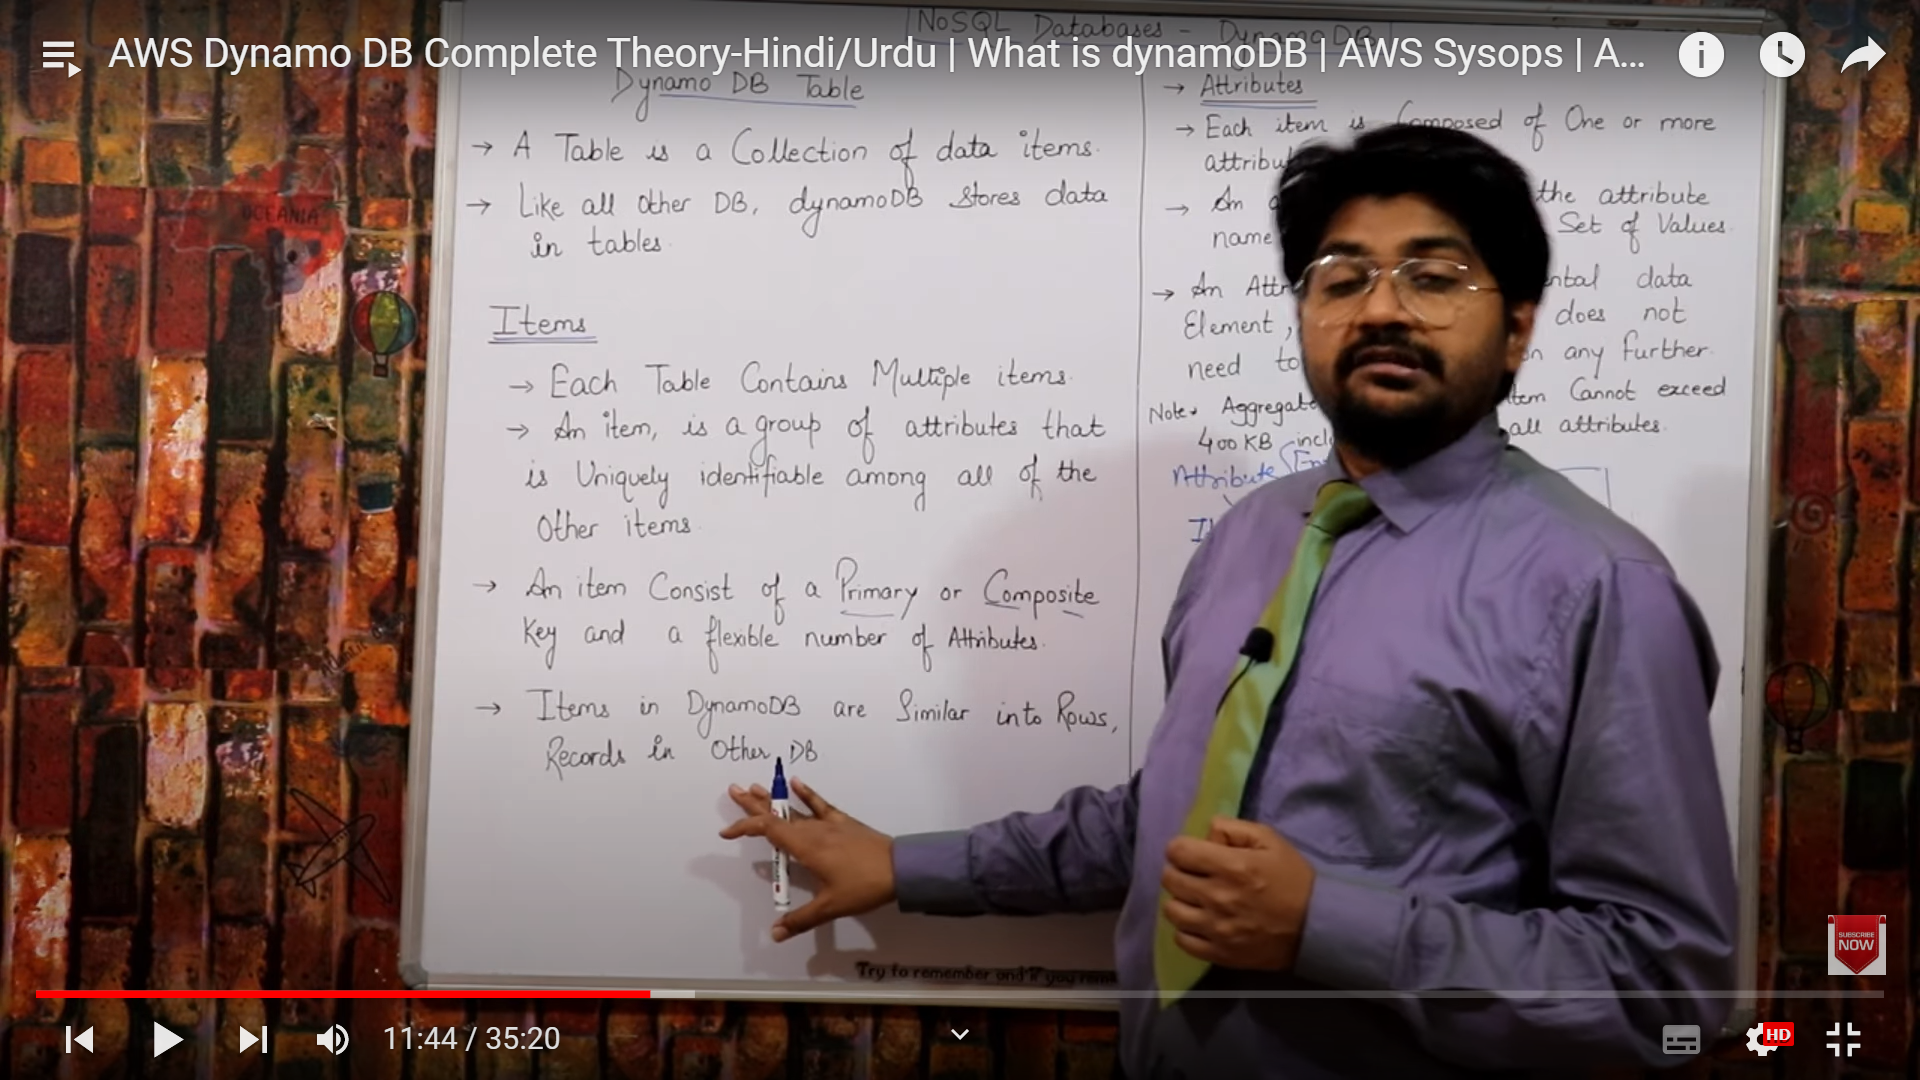 AWS Dynamo DB Complete Theory-Hindi/Urdu | What is dynamoDB | AWS Sysops | A...
NoSQL Databases - DynamoDB
Dynamo DB Table
→ A Table is a Collection of data items.
→ Like all Other DB, dynamoDB Stores data
in tables.
Items
→ Each Table Contains Multiple items.
→ An item, is a group of attributes that
is Uniquely identifiable among all of the
Other items.
→ An item Consist of a Primary or Composite
Key and a flexible number of Attributes.
→ Items in DynamoDB are Similar into Rows,
Records in Other DB
→ Attributes
→ Each item is Composed of One or more
attribu
→ An the attribute
name Set of Values.
→ An Attr ental data
Element, does not
need to on any further.
Note: Aggregate item Cannot exceed
400 KB incl all attributes.
Attribute
OCEANIA
Try to remember and if you
SUBSCRIBE
NOW
11:44 / 35:20
HD